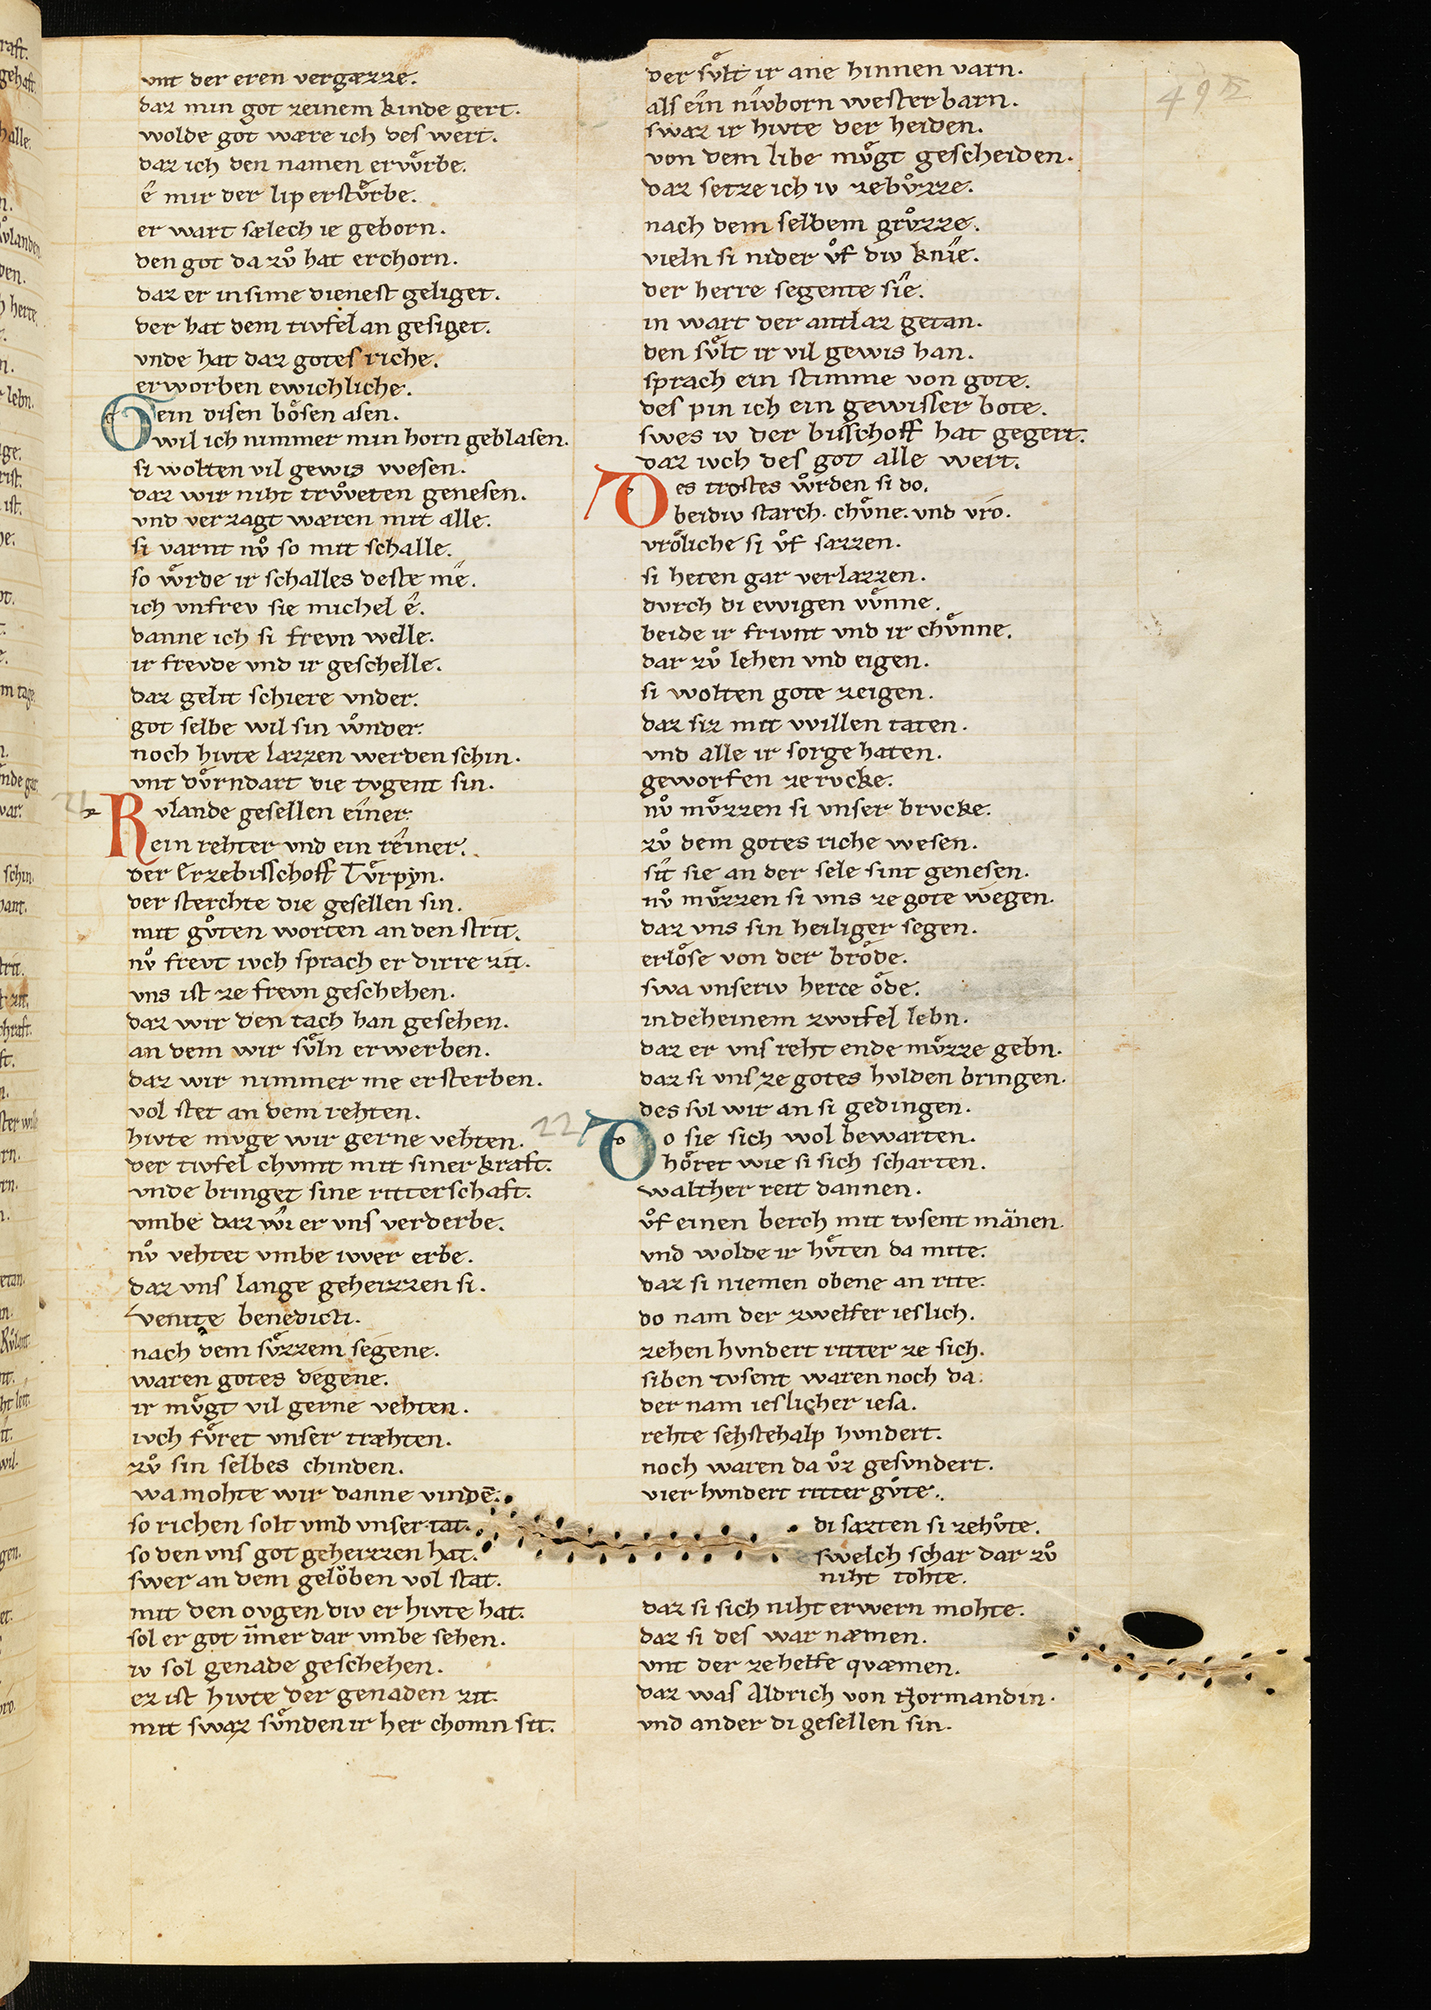 vnt der eren vergæzze.
daz min got zeinem kinde gert.
wolde got wære ich des wert.
daz ich den namen erwᵛͤrbe.
ê mir der lip erstᵛͤrbe.
er wart sælech ie geborn.
den got da zvͦ hat erchorn.
daz er in sime dienest geliget.
der hat dem tivfel an gesiget.
vnde hat daz gotes riche.
erworben ewichliche.
Oein disen bôsen asen.
wil ich nimmer min horn geblasen.
si wolten vil gewis wesen.
daz wir niht trvͦweten genesen.
vnd verzagt wæren mit alle.
si varnt nvͦ so mit schalle.
so wᵛͤrde ir schalles deste mê.
ich vnfrev sie michel ê.
danne ich si frevn welle.
ir frevde vnd ir geschelle.
daz gelit schiere vnder.
got selbe wil sin wͦnder.
noch hivte lazzen werden schin.
vnt dvͤrndart die tvgent sin.
Rvlande gesellen einer.
ein rehter vnd ein reiner.
der Erzebisschoff Tvͤrpyn.
der sterchte die gesellen sin.
mit gvͦten worten an den strit.
nvͦ frevt ivch sprach er dirre zit.
vns ist ze frevn geschehen.
daz wir den tach han gesehen.
an dem wir svͤln erwerben.
daz wir nimmer me ersterben.
vol stet an dem rehten.
hivte mvge wir gerne vehten.
der tivfel chvmt mit siner kraft.
vnde bringet sine ritterschaft.
vmbe daz wi er vns verderbe.
nvͦ vehtet vmbe iwer erbe.
daz vns lange geheizzen si.
venite benedicti.
nach dem svͤzzem segene.
waren gotes degene.
ir mvͤgt vil gerne vehten.
ivch fvͤret vnser træhten.
zvͦ sin selbes chinden.
wa mohte wir danne vindē.
so richen solt vmb vnser tat.
so den vns got geheizzen hat.
swer an dem gelöben vol stat.
mit den ovgen div er hivte hat.
sol er got im̄er dar vmbe sehen.
iv sol genade geschehen.
ez ist hivte der genaden zit.
mit swaz svͤnden ir her chomn sit.
der svͤlt ir ane hinnen varn.
als ein nivborn wester barn.
swaz ir hivte der heiden.
von dem libe mvͤgt gescheiden.
daz setze ich iv zebvͦzze.
nach dem selbem grvͦzze.
vieln si nider vͦf div knie.
der herre segente sie.
in wart der antlaz getan.
den svͤlt ir vil gewis han.
sprach ein stimme von gote.
des pin ich ein gewisser bote.
swes iv der bisschoff hat gegert.
daz ivch des got alle wert.
Des trostes wͦrden si do.
beidiv starch. chvͤne. vnd vro.
vrôliche si vͦf sazzen.
si heten gar verlazzen.
dvrch di ewigen wͤnne.
beide ir frivnt vnd ir chvͤnne.
dar zvͦ lehen vnd eigen.
si wolten gote zeigen.
daz siz mit willen taten.
vnd alle ir sorge haten.
geworfen ze rvcke.
nvͦ mvͤzzen si vnser brvcke.
zvͦ dem gotes riche wesen.
sit sie an der sele sint genesen.
nvͦ mvͤzzen si vns ze gote wegen.
daz vns sin heiliger segen.
erlôse von der brôde.
swa vnseriv herce ôde.
in deheinem zwifel lebn.
daz er vns reht ende mvͤzze gebn.
daz si vns ze gotes hvlden bringen.
des svl wir an si gedingen.
Do sie sich wol bewarten.
hôret wie si sich scharten.
walther reit dannen.
vͦf einen berch mit tvsent mänen.
vnd wolde ir hvͤten da mite.
daz si niemen obene an rite.
do nam der zwelfer ieslich.
zehen hvndert ritter ze sich.
siben tvsent waren noch da.
der nam ieslicher iesa.
rehte sehstehalp hvndert.
noch waren da vͦz gesvndert.
vier hvndert ritter gvͦte.
di sazten si zehvͦte.
swelch schar dar zvͦ
niht tohte.
daz si sich niht erwern mohte.
daz si des war næmen.
vnt der zehelfe quæmen.
daz was Aldrich von Normandin.
vnd ander di gesellen sin.
49
21
22